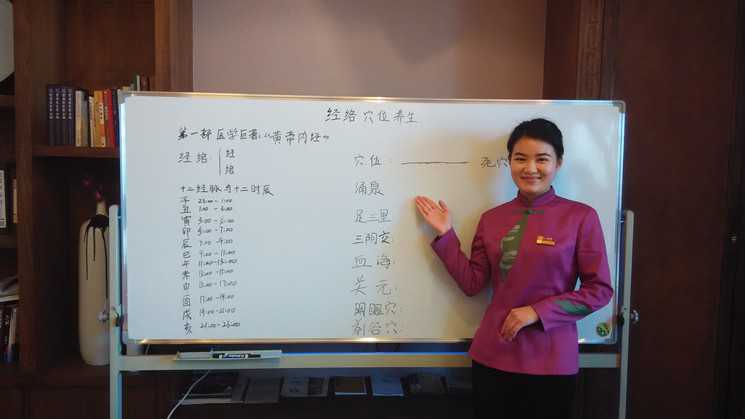 经络穴位养生
第一部医学巨著:《黄帝内经》
经络: 经
络
十二经脉与十二时辰
子 23:00-1:00
丑 1:00-3:00
寅 3:00-5:00
卯 5:00-7:00
辰 7:00-9:00
巳 9:00-11:00
午 11:00-13:00
未 13:00-15:00
申 15:00-17:00
酉 17:00-19:00
戌 19:00-21:00
亥 21:00-23:00
穴位: 死穴
涌泉:
足三里:
三阴交:
血海:
关元: